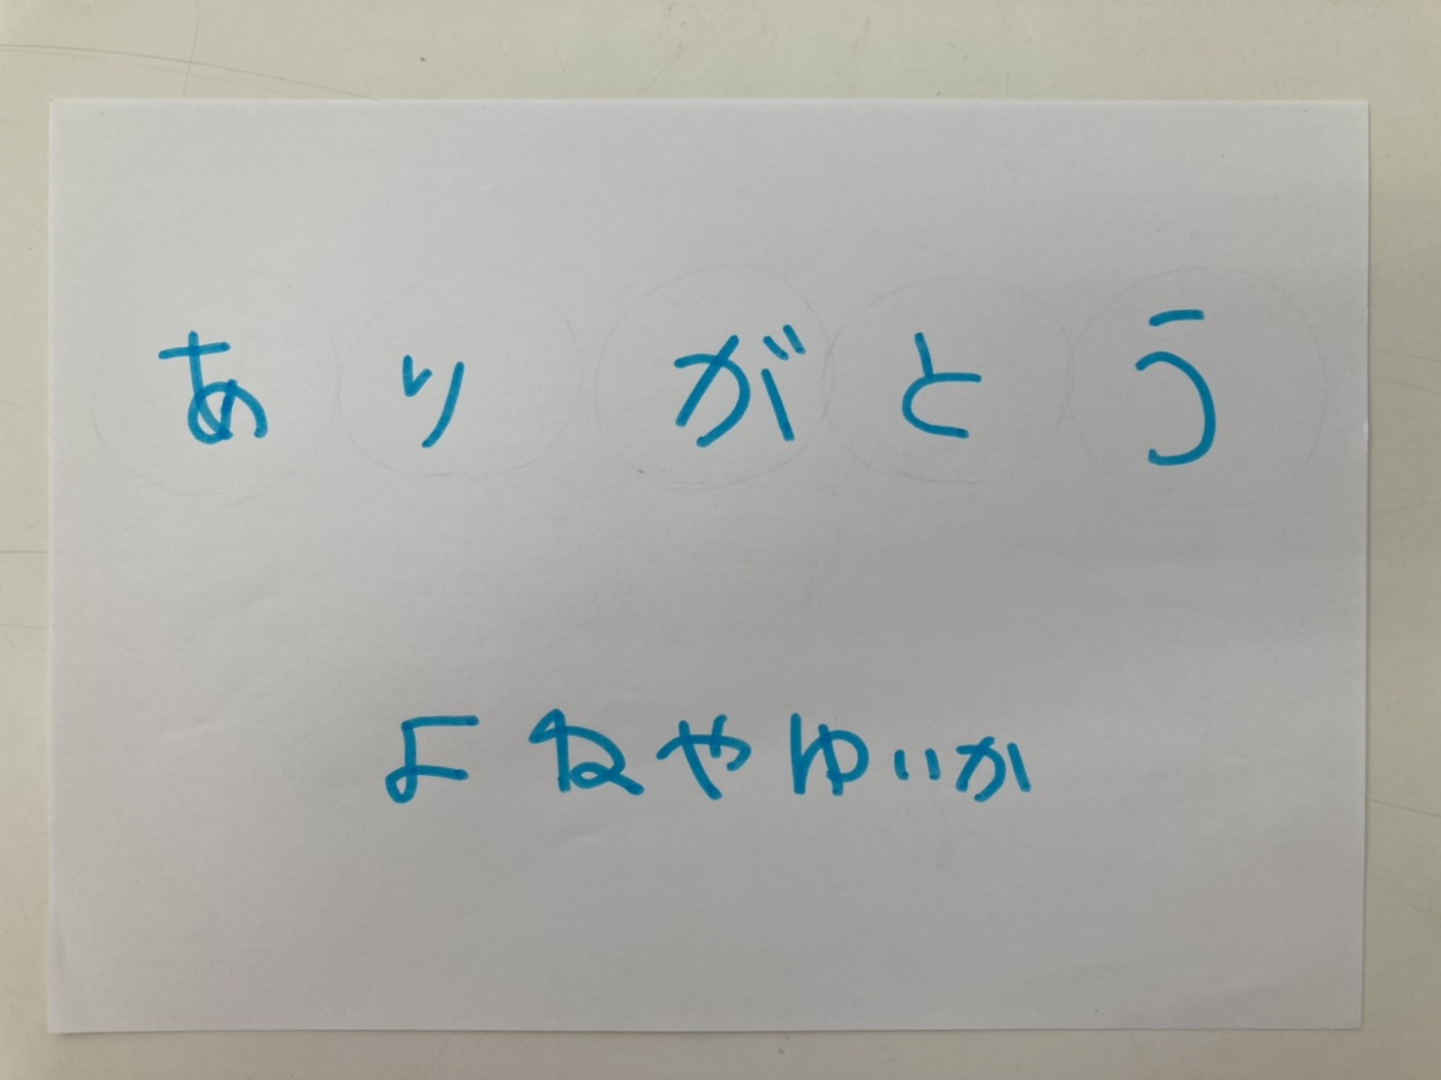 ありがとう
よねやゆいか